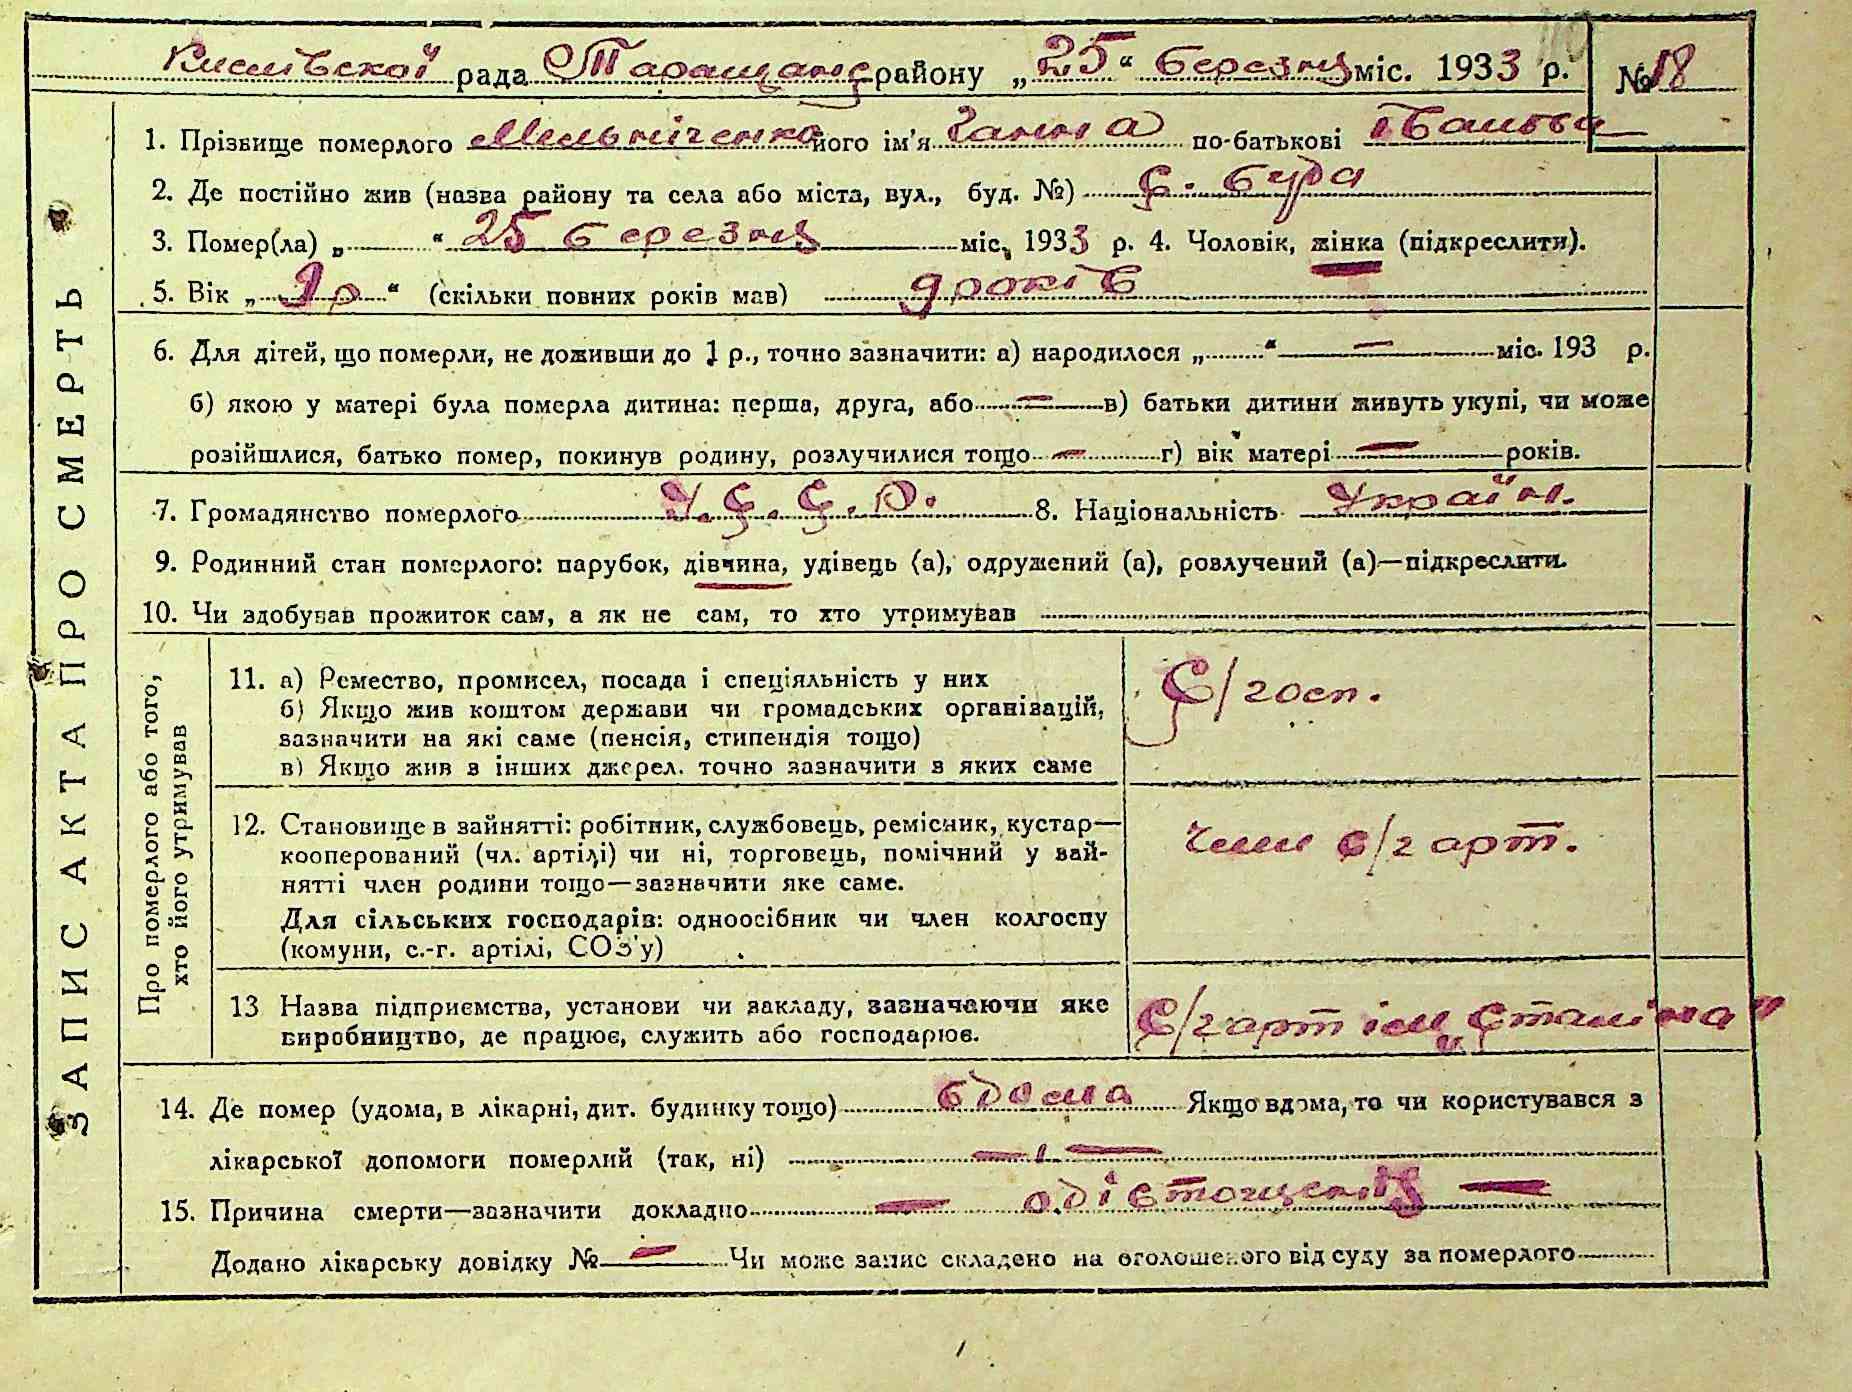 Кислівської рада Таращанс району „25“ березня міс. 1933 р. № 18
ЗАПИС АКТА ПРО СМЕРТЬ
1. Прізвище померлого Мельніченко його ім'я Ганна по-батькові Івановна
2. Де постійно жив (назва району та села або міста, вул., буд. №) С. Буда
3. Помер(ла) „ “ 25 березня міс. 1933 р. 4. Чоловік, жінка (підкреслити).
5. Вік „9 р“ (скільки повних років мав) 9 років
6. Для дітей, що померли, не доживши до 1 р., точно зазначити: а) народилося „ “ — міс. 193 р.
б) якою у матері була померла дитина: перша, друга, або — в) батьки дитини живуть укупі, чи може
розійшлися, батько помер, покинув родину, розлучилися тощо — г) вік матері — років.
7. Громадянство померлого У.С.С.Р. 8. Національність Україн.
9. Родинний стан померлого: парубок, дівчина, удівець (а), одружений (а), розлучений (а)—підкреслити.
10. Чи здобував прожиток сам, а як не сам, то хто утримував
Про померлого або того,
хто його утримував
11. а) Ремество, промисел, посада і спеціяльність у них
б) Якщо жив коштом держави чи громадських організацій,
зазначити на які саме (пенсія, стипендія тощо)
в) Якщо жив з інших джерел. точно зазначити з яких саме
С/госп.
12. Становище в зайнятті: робітник, службовець, ремісник, кустар—
кооперований (чл. артілі) чи ні, торговець, помічний у зай-
нятті член родини тощо—зазначити яке саме.
Для сільських господарів: одноосібник чи член колгоспу
(комуни, с.-г. артілі, СОЗ'у)
член с/г арт.
13 Назва підприємства, установи чи закладу, зазначаючи яке
виробництво, де працює, служить або господарює.
С/г арт ім „Сталіна"
14. Де помер (удома, в лікарні, дит. будинку тощо) вдома Якщо вдома, то чи користувався з
лікарської допомоги померлий (так, ні) — і —
15. Причина смерти—зазначити докладно — одістощенія —
Додано лікарську довідку № — Чи може запис складено на оголошеного від суду за померлого